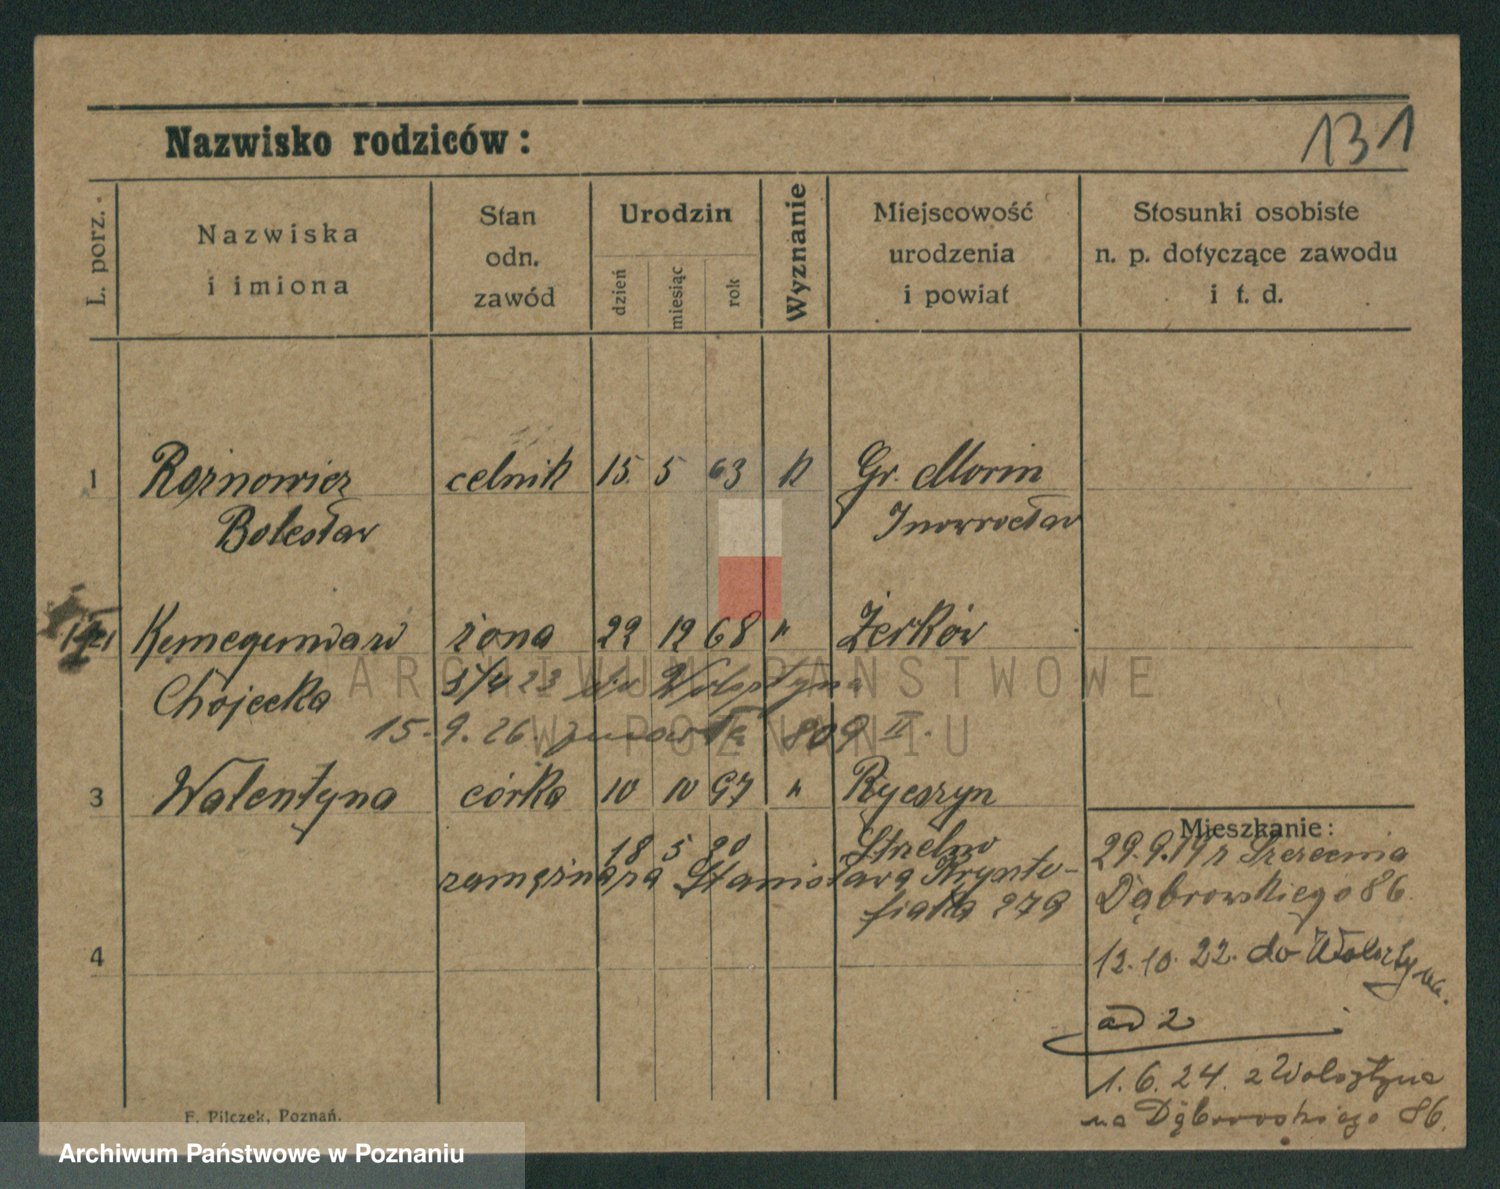 Nazwisko rodziców:
131
L. porz.
Nazwiska
i imiona
Stan
odn.
zawód
Urodzin
dzień
miesiąc
rok
Wyznanie
Miejscowość
urodzenia
i powiat
Stosunki osobiste
n. p. dotyczące zawodu
i t. d.
1 Rożnowicz celnik 15. 5 63 k Gr. Morin
Bolesław Inowrocław
żona 22 12 68 " Żerków
Chojecka 23 do Wolsztyna
15. 9. 26. 809 II.
3 Walentyna córka 10 10 97 " Ryczyn
18 5 20 Strelno
zamężna za Stanisława Kryszto-
fiaka 279
4
Mieszkanie:
29.9.19 z
Dąbrowskiego 86.
12.10.22. do Wolsztyna.
ad 2
1.6.24. z Wolsztyna
na Dąbrowskiego 86.
F. Pilczek, Poznań.
ARCHIWUM PAŃSTWOWE
W POZNANIU
Archiwum Państwowe w Poznaniu